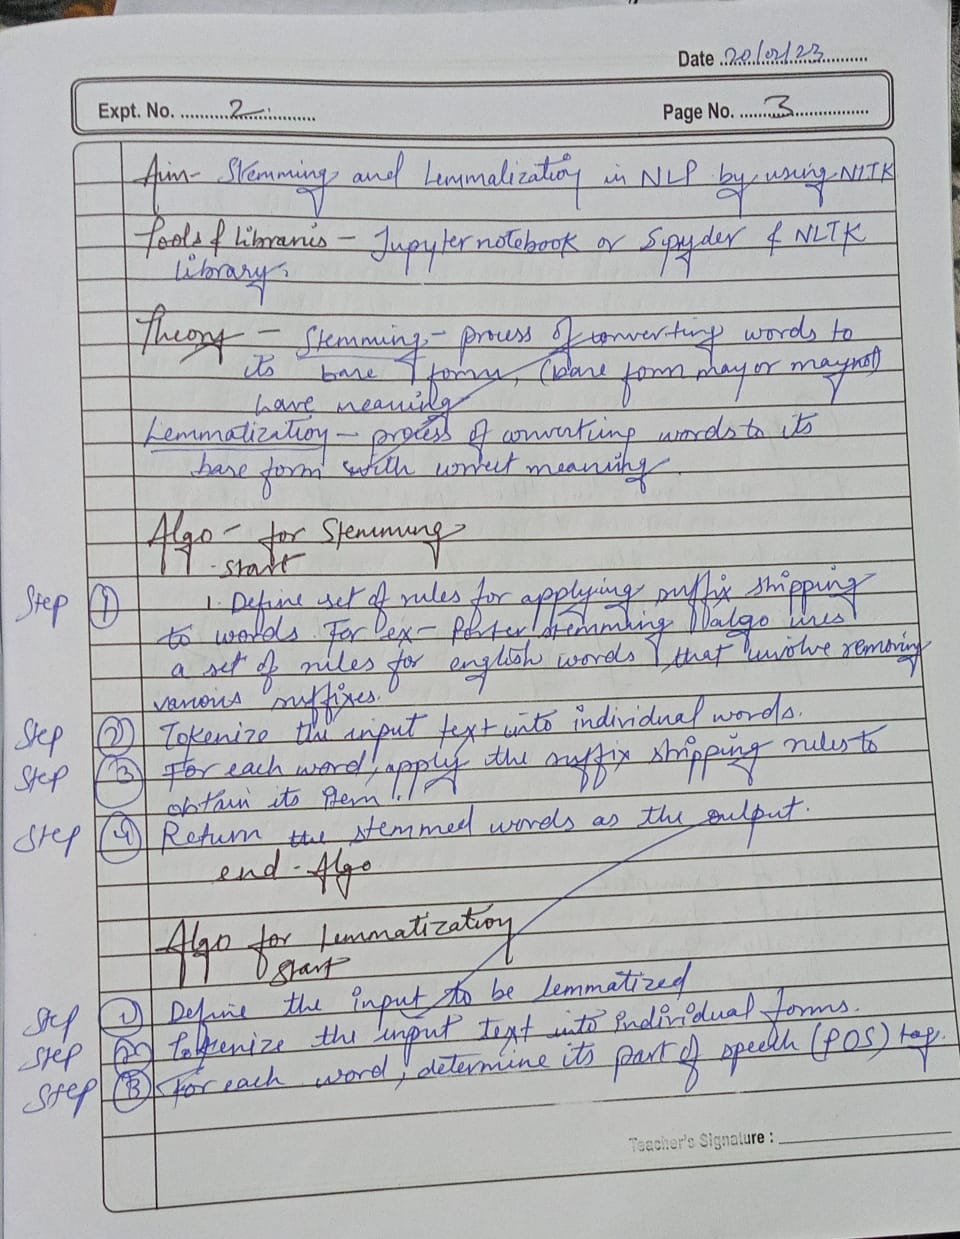 Date 20/02/23
Expt. No. 2
Page No. 3
Aim- Stemming and Lemmalization in NLP by using NLTK
Tools & Libraries - Jupyter notebook or Sypder & NLTK
library.
Theory - Stemming - process of converting words to
its base form, (base form may or may not)
have meaning
Lemmatization - process of converting words to its
base form with correct meaning.
Algo - for Stemming
start
Step ① 1. Define set of rules for applying suffix stripping
to words. For ex- Porter stemming algo uses
a set of rules for english words, that involve removing
various suffixes.
Step ② Tokenize the input text into individual words.
Step ③ For each word, apply the suffix stripping rules to
obtain its stem.
Step ④ Return the stemmed words as the output.
end - Algo.
Algo for Lemmatization
start
Step ① Define the input to be lemmatized
Step ② Tokenize the input text into individual forms.
Step ③ For each word, determine its part of speech (POS) tag.
Teacher's Signature :